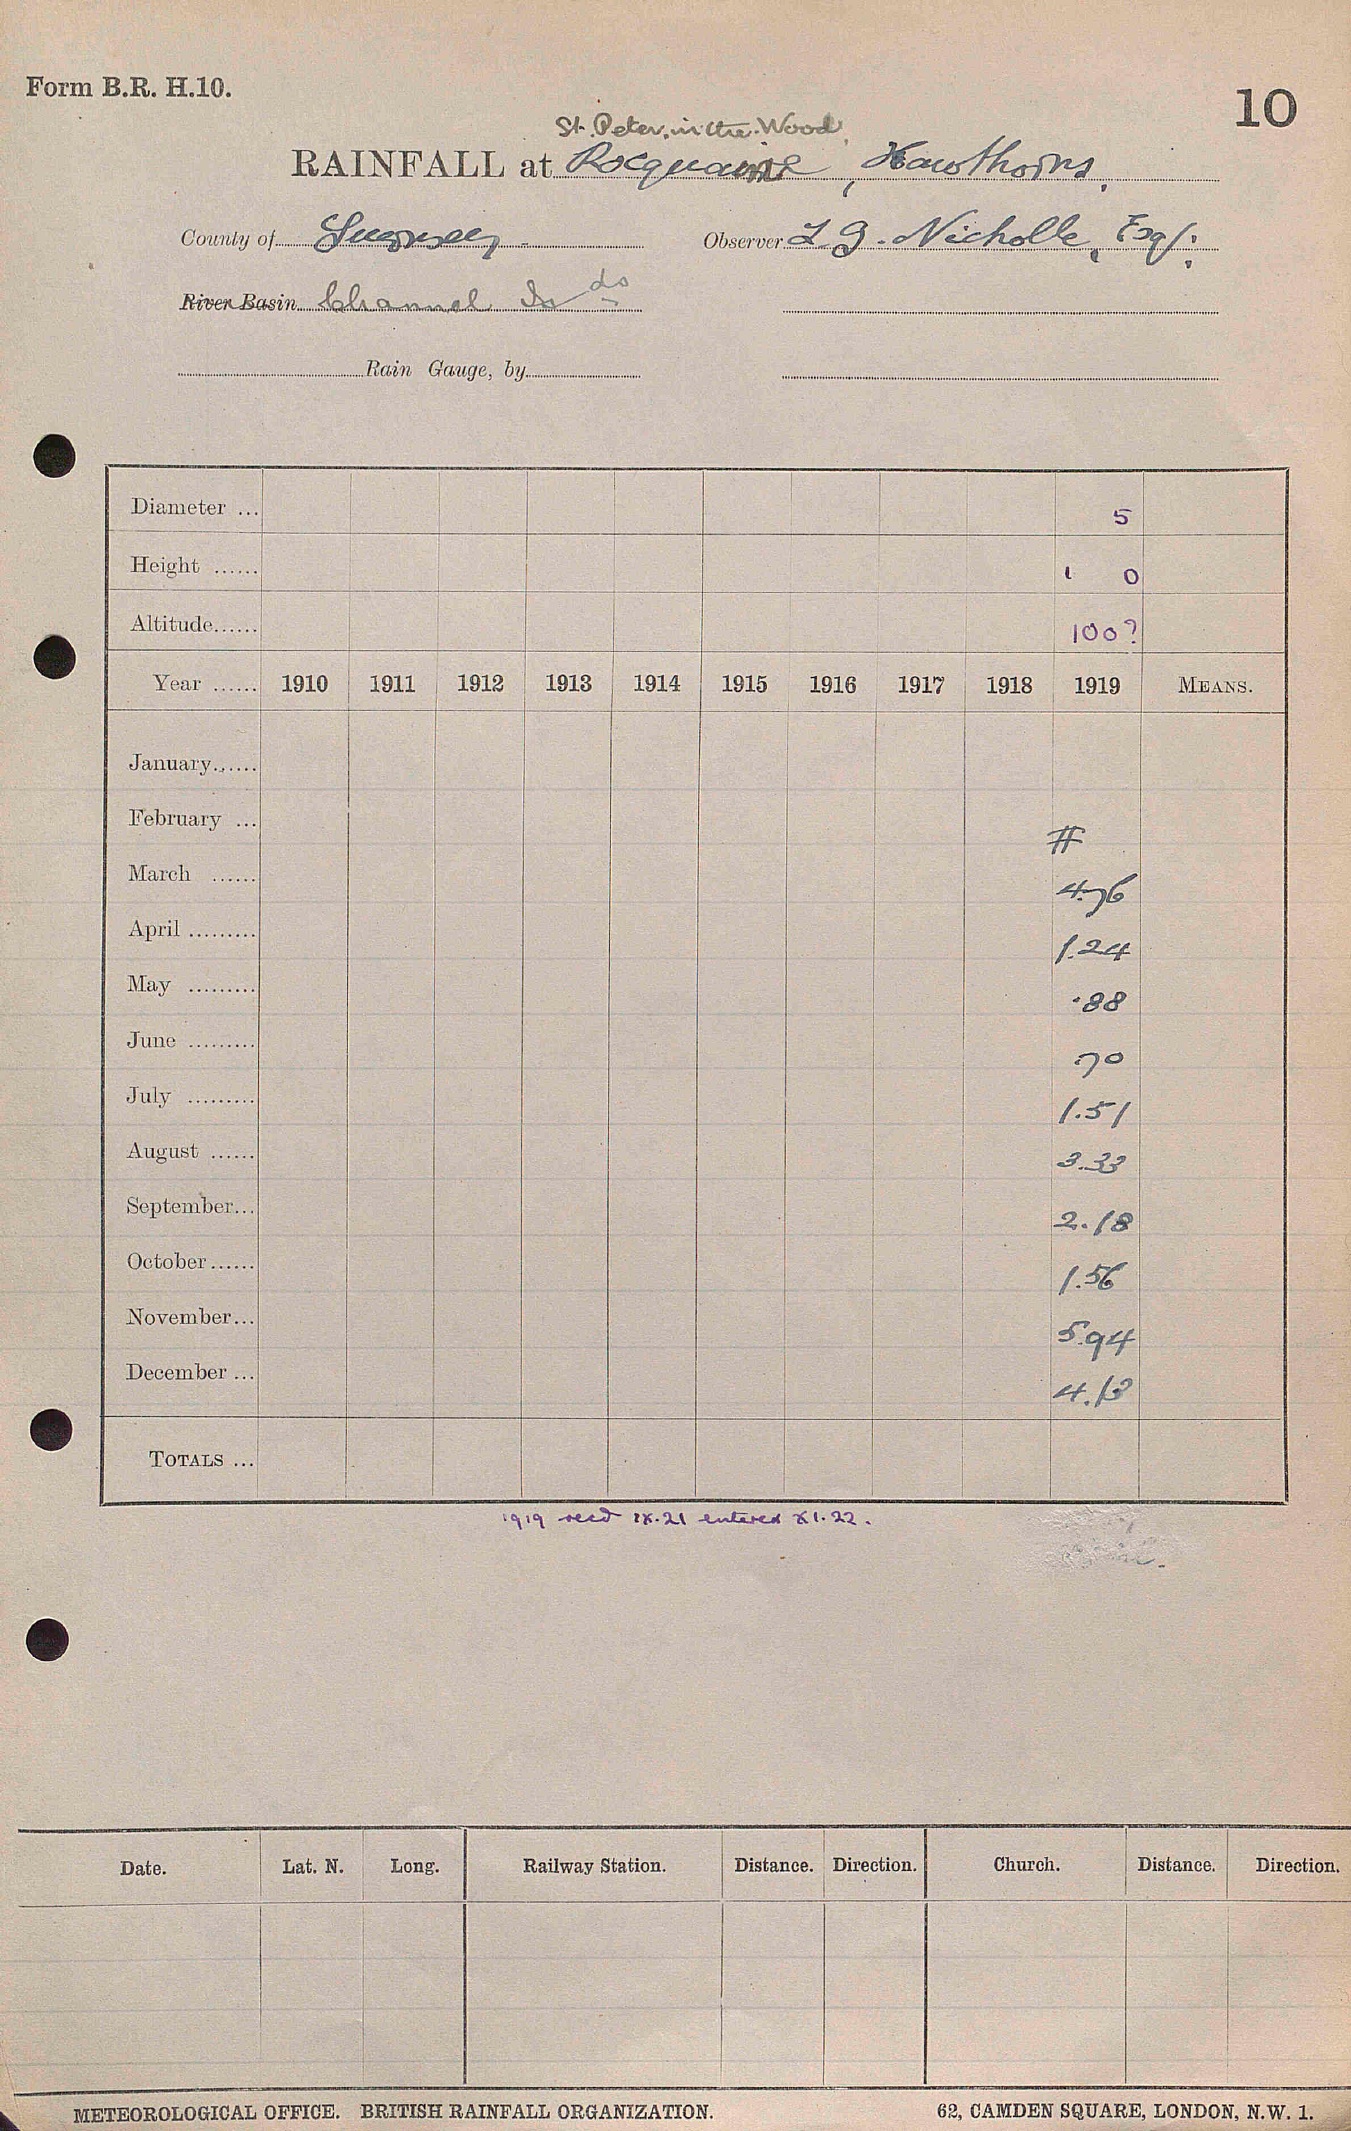 Form B.R. H.10.
10
St. Peter-in-the-Wood,
RAINFALL at Rocquaine, Hawthorns,
County of Guernsey. Observer L. G. Nicholle, Esq:
River Basin Channel Isds
Rain Gauge, by
Diameter ... 5
Height ...... 1 0
Altitude...... 100?
Year ...... 1910 1911 1912 1913 1914 1915 1916 1917 1918 1919 MEANS.
January......
February ... #
March ...... 4.76
April ......... 1.24
May ......... .88
June ......... .70
July ......... 1.51
August ...... 3.33
September... 2.18
October...... 1.56
November... 5.94
December ... 4.13
TOTALS ...
1919 recd IX.21 entered XI.22.
Date. Lat. N. Long. Railway Station. Distance. Direction. Church. Distance. Direction.
METEOROLOGICAL OFFICE. BRITISH RAINFALL ORGANIZATION. 62, CAMDEN SQUARE, LONDON, N.W. 1.